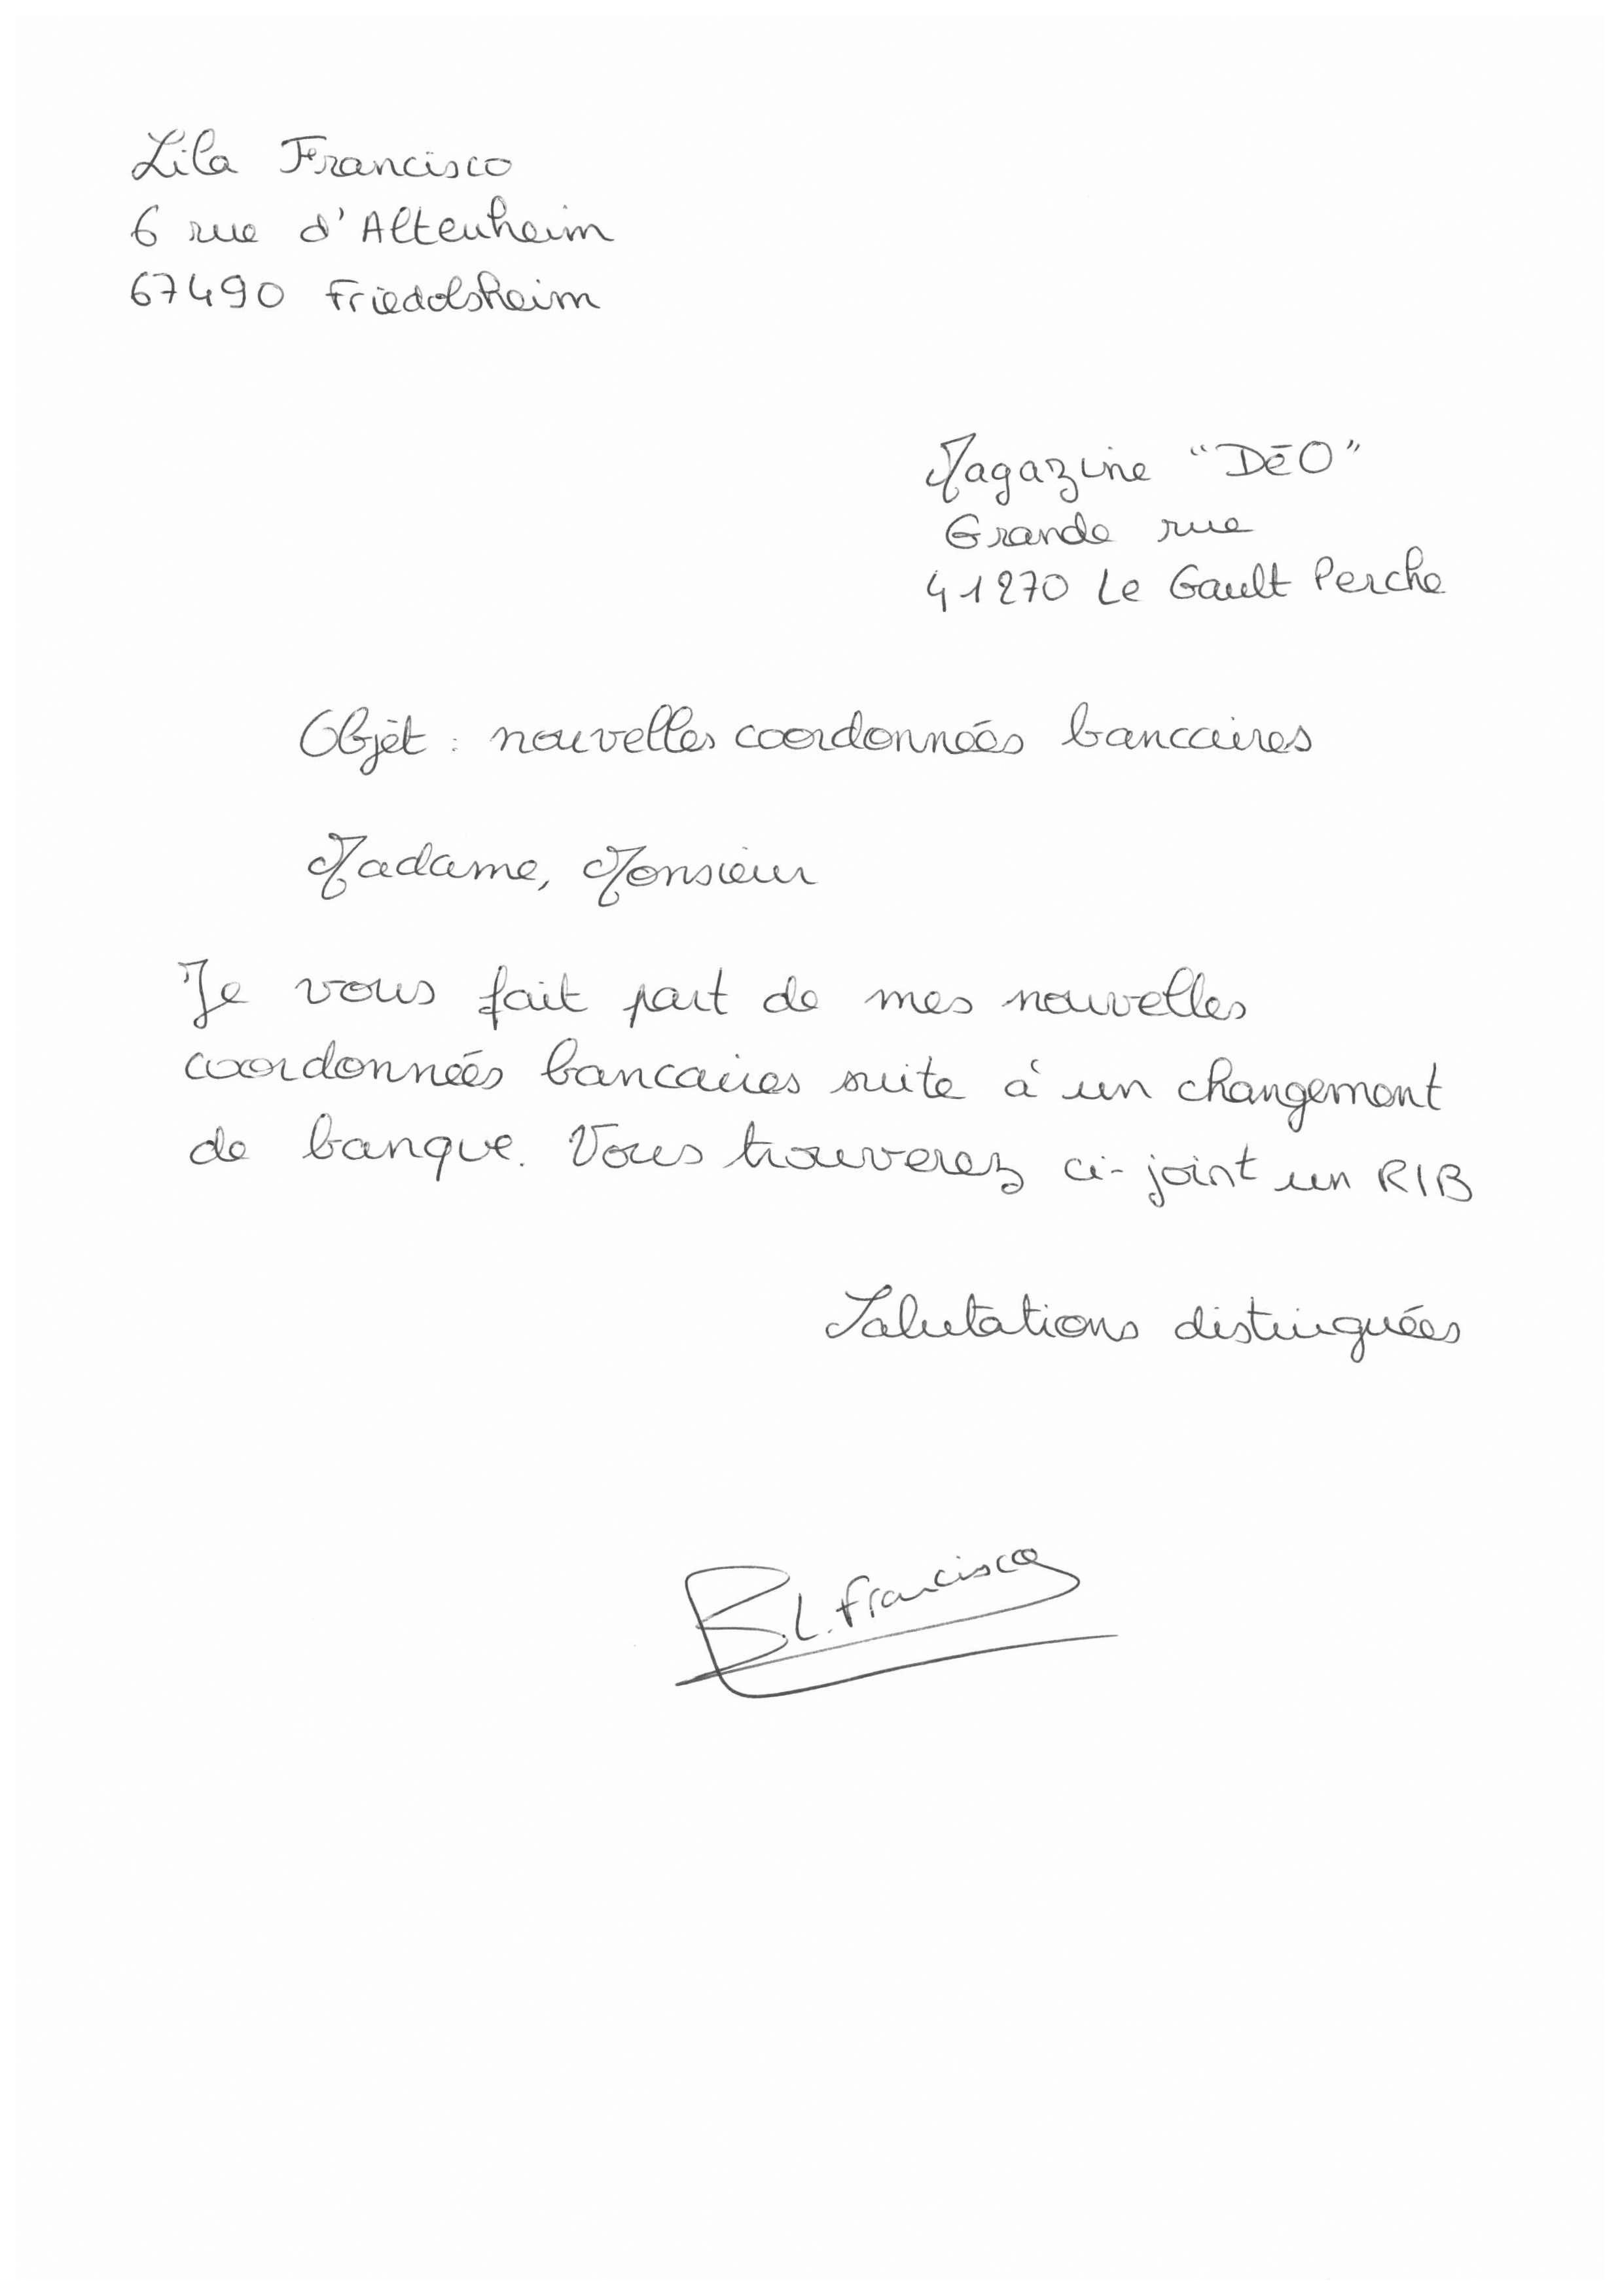 Lila Francisco
6 rue d'Altenheim
67490 Friedolsheim
Magazine "DéO"
Grande rue
41270 Le Gault Perche
Objet : nouvelles coordonnées bancaires
Madame, Monsieur
Je vous fait part de mes nouvelles
coordonnées bancaires suite à un changement
de banque. Vous trouverez ci-joint un RIB
Salutations distinguées
L. Francisco